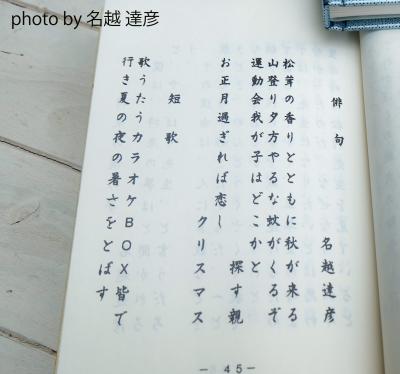 photo by 名越 達彦
俳句
名越達彦
松茸の香りとともに秋が来る
山登り夕方やるな蚊がくるぞ
運動会我が子はどこかと
探す親
お正月過ぎれば恋し
クリスマス
短歌
歌うたうカラオケBOX皆で
行き夏の夜の暑さをとばす
－45－